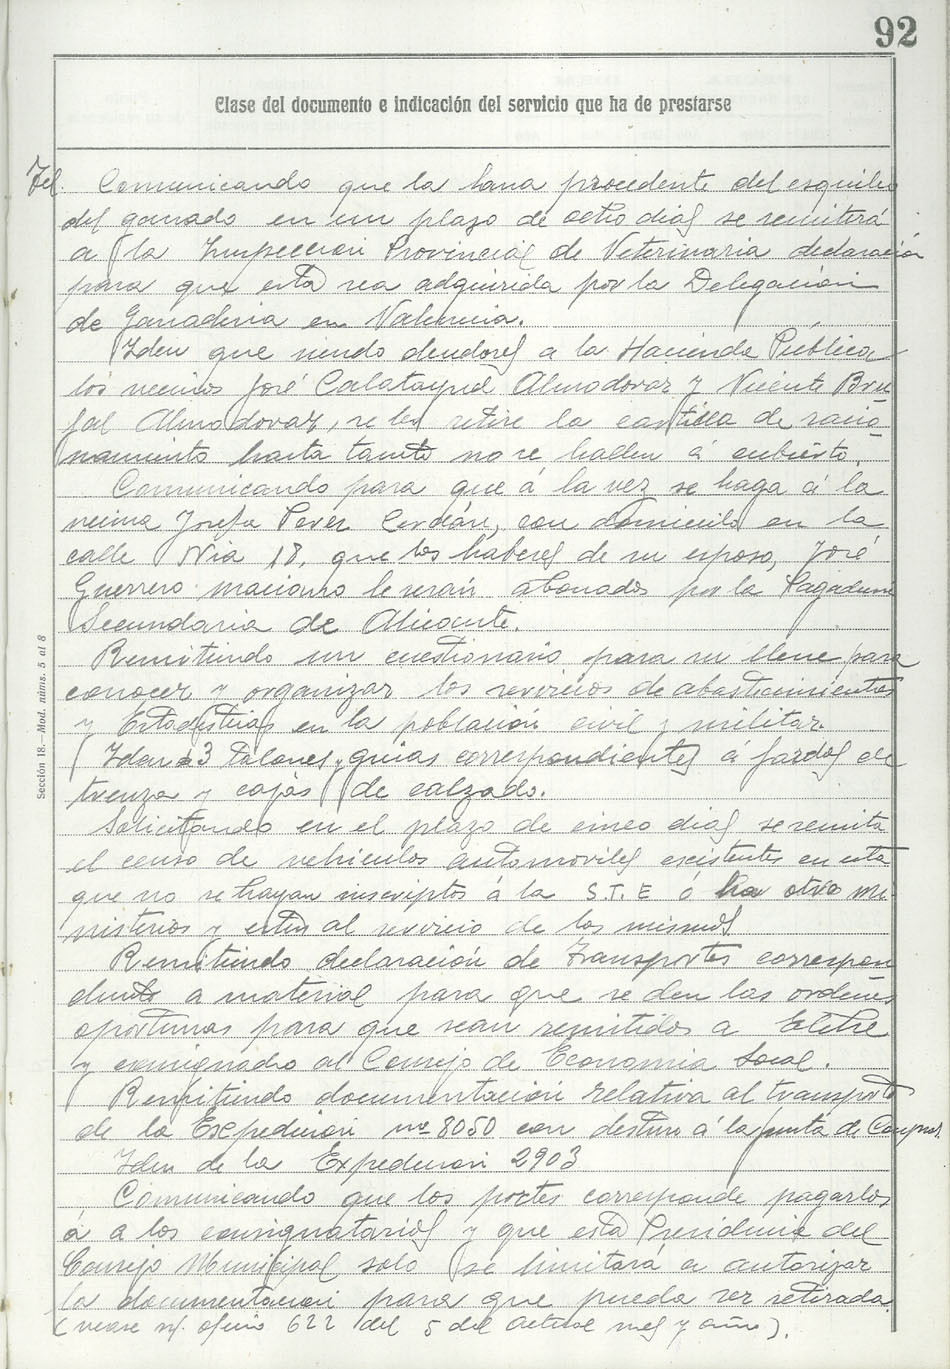 92
Clase del documento e indicación del servicio que ha de prestarse
Tel. Comunicando que la lana procedente del esquileo
del ganado en un plazo de ocho dias se remitirá
a la Inspeccion Provincial de Veterinaria declaración
para que esta sea adquirida por la Delegación
de Ganaderia en Valencia.
Idem que siendo deudores a la Hacienda Pública
los vecinos José Calatayud Almodovar y Vicente Bru
fal Almodovar, se les retire la cartilla de racio
namiento hasta tanto no se hallen á cubierto.
Comunicando para que á la vez se haga á la
vecina Josefa Perez Cerdán, con domicilio en la
calle Nia 18, que los haberes de su esposo, José
Guerrero maciano le seran abonados por la Pagaduria
Secundaria de Alicante.
Remitiendo un cuestionario para su llene para
conocer y organizar los servicios de abastecimientos
y Estadisticas en la población civil y militar.
Idem 3 Talones, guias correspondientes á fardos de
trenza y cajas de calzado.
Solicitando en el plazo de cinco dias se remita
el censo de vehiculos automoviles existentes en esta
que no se hayan inscriptos á la S.T.E ó otro mi-
nisterios y esten al servicio de los mismos
Remitiendo declaración de Transportes correspon
diente a material para que se den las ordenes
oportunas para que sean remitidos a Elche
y consignado al Consejo de Economia Local.
Remitiendo documentación relativa al transporte
de la Expedicion nº 8050 con destino á la Junta de Compras.
Idem de la Expedicion 2903
Comunicando que los portes corresponde pagarlos
á a los consignatarios y que esta Presidencia del
Consejo Municipal solo se limitará a autorizar
la documentacion para que pueda ser retirada
(vease n/. oficio 622 del 5 del actual mes y año).
Sección 18.—Mod. núms. 5 al 8